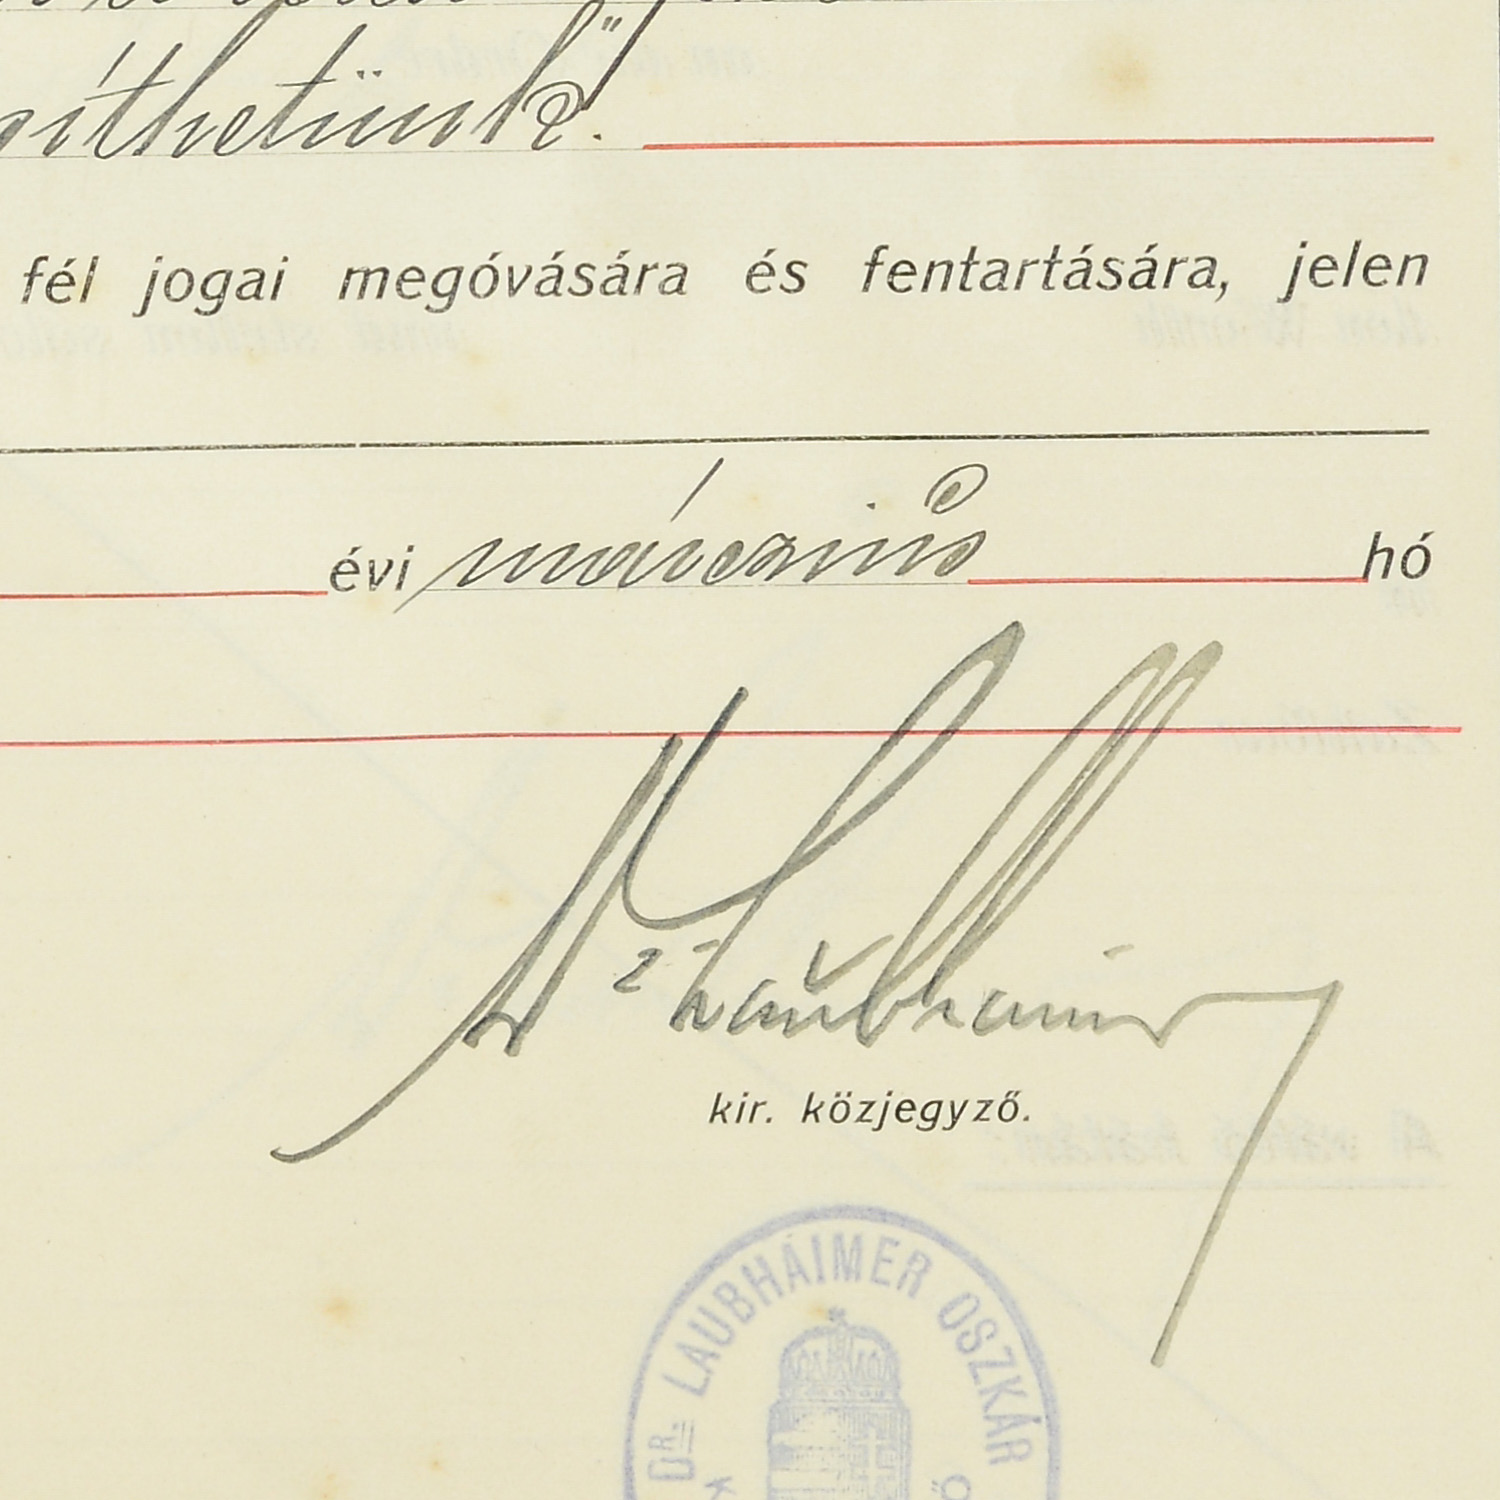 síthetünk".
fél jogai megóvására és fentartására, jelen
évi márczius hó
Dr Laubhaimer
kir. közjegyző.
DR. LAUBHAIMER OSZKÁR